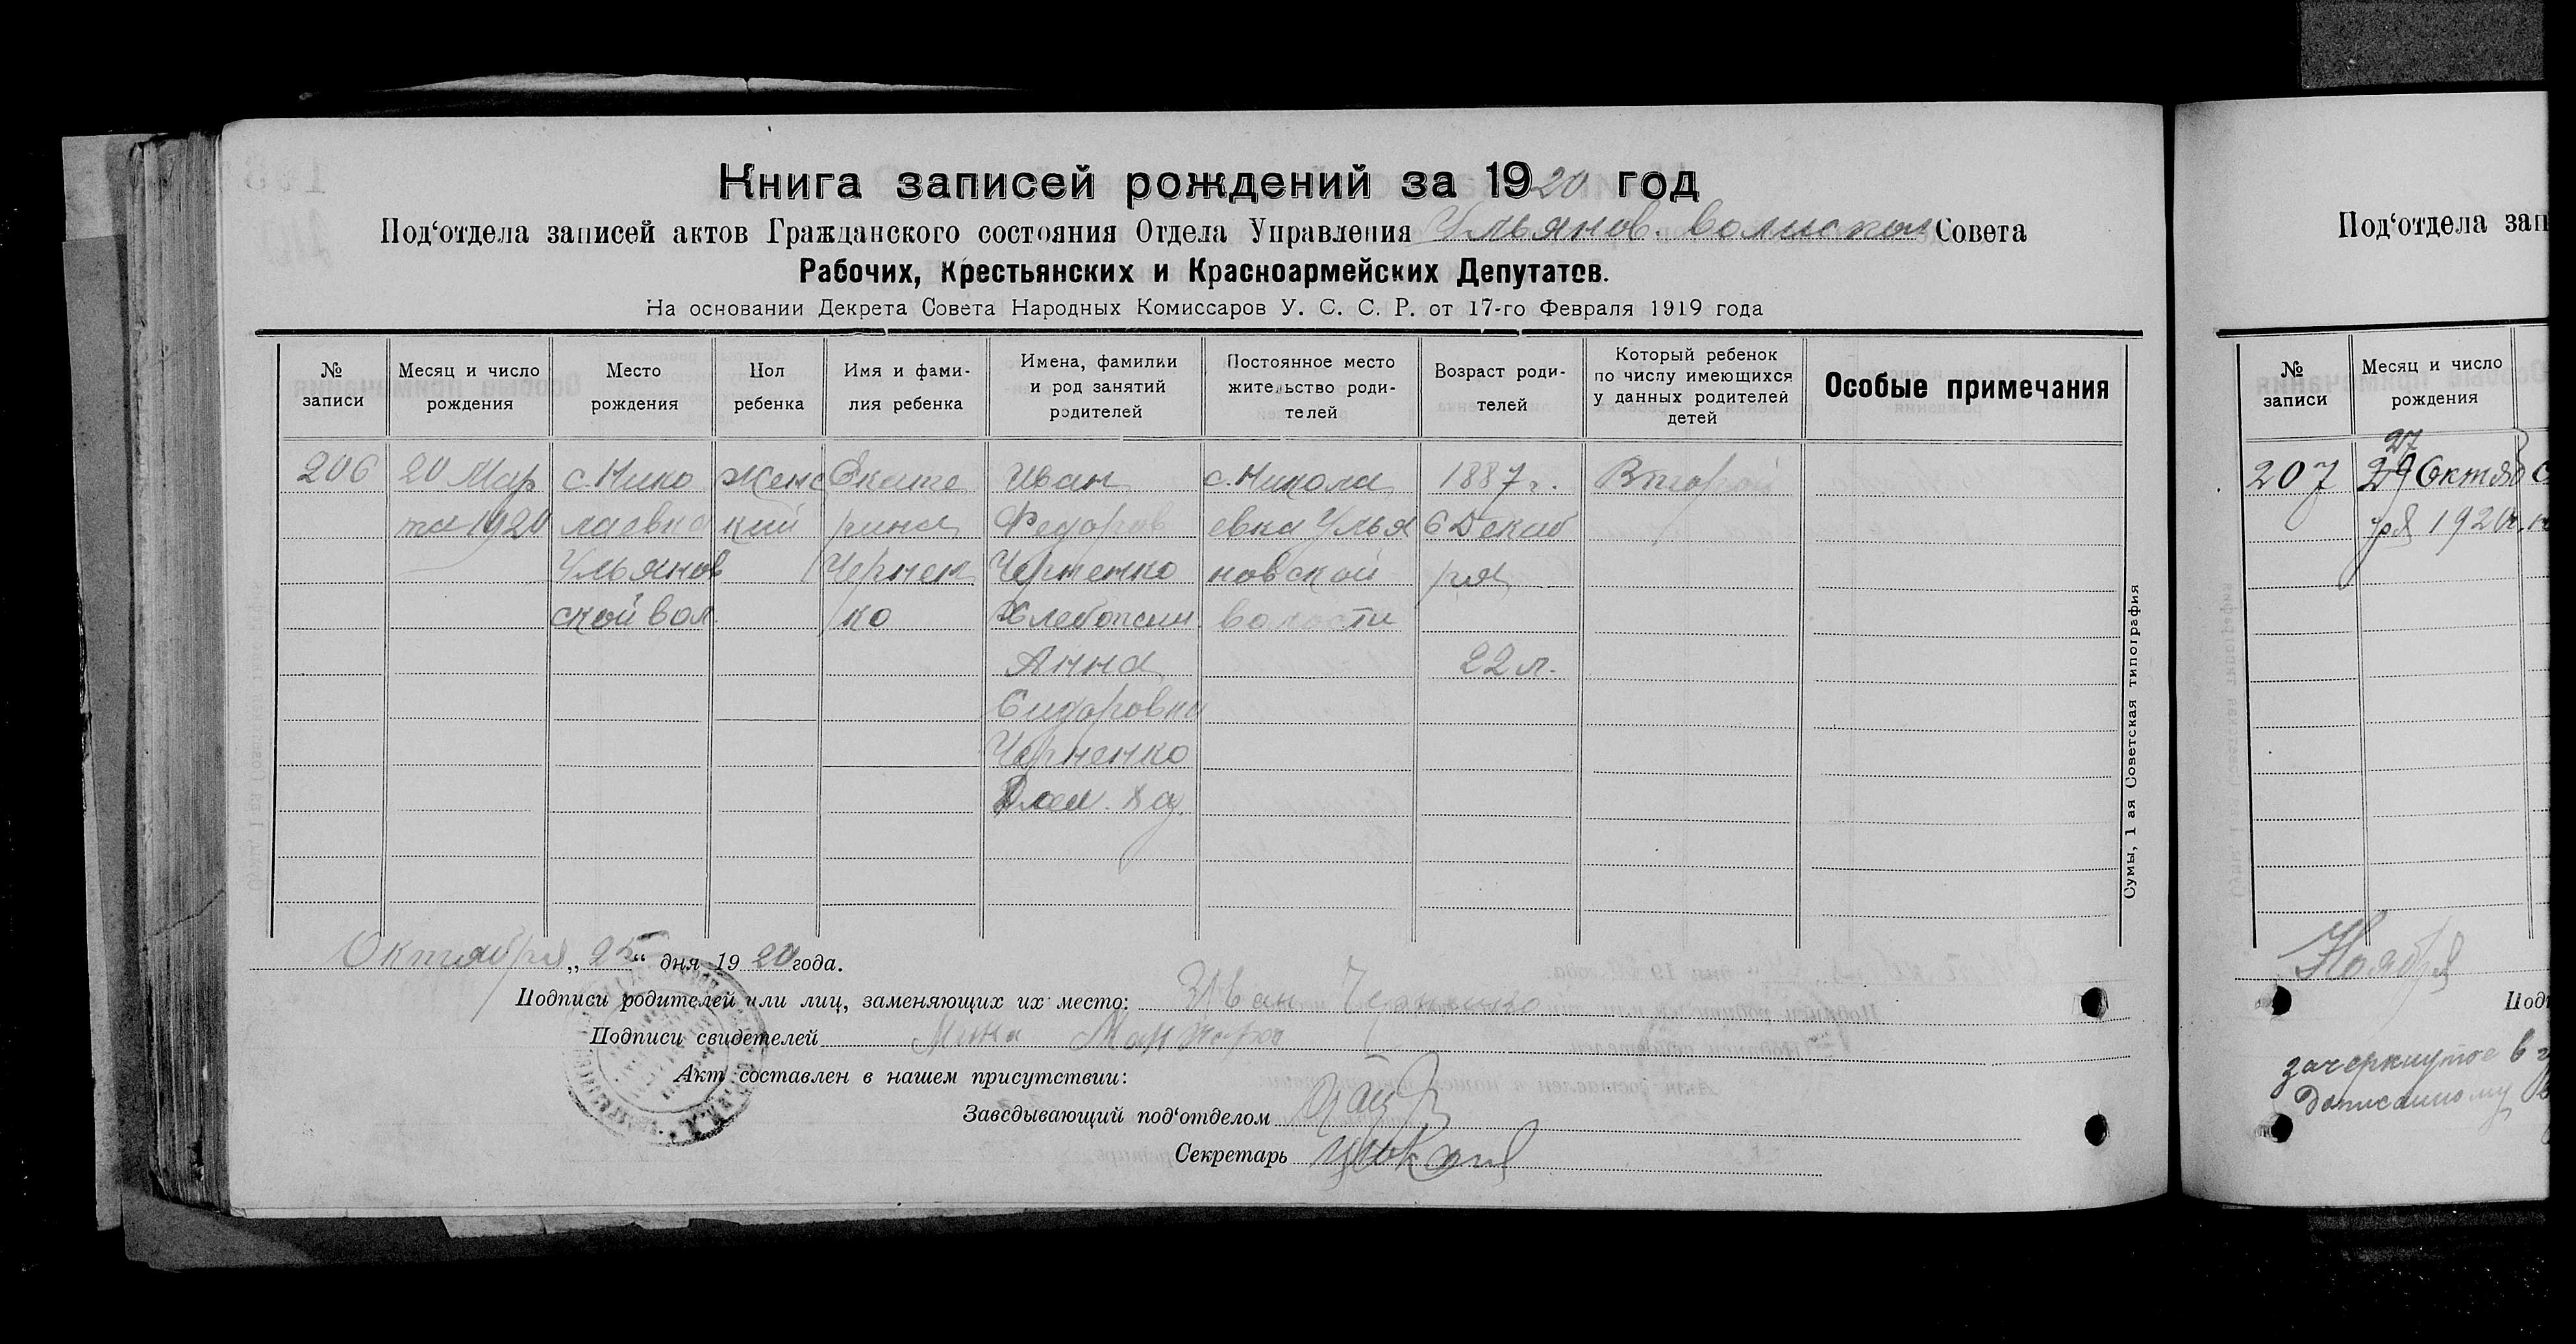 Книга записей рождений за 1920 год
Под‘отдела записей актов Гражданского состояния Отдела Управления Ульянов. волиской Совета
Рабочих, Крестьянских и Красноармейских Депутатов.
На основании Декрета Совета Народных Комиссаров У. С. С. Р. от 17-го Февраля 1919 года
№ записи
Месяц и число рождения
Место рождения
Пол ребенка
Имя и фами-
лия ребенка
Имена, фамилии
и род занятий
родителей
Постоянное место
жительство роди-
телей
Возраст роди-
телей
Который ребенок
по числу имеющихся
у данных родителей
детей
Особые примечания
206
20 Мар
та 1920
с. Нико
лаевка
Ульянов
ской вол.
Женс
кий
Екате
рина
Чернен
ко
Иван
Федоров
Черненко
Хлебопаш.
Анна
Сидоровна
Черненко
Дом. хоз.
с. Никола
евка Улья
новской
волости
1887 г.
6 Декаб
ря
22 л.
Второй
Сумы, 1 ая Советская типография
Октября „25“ дня 1920 года.
Подписи родителей или лиц, заменяющих их место: Иван Черненко
Подписи свидетелей
Акт составлен в нашем присутствии:
Заведывающий под‘отделом
Секретарь
Под‘отдела зап
№ записи
Месяц и число рождения
207
27
29 Октяб
ря 1920г.
Ноября
Под
зачеркнутое в
дописанному